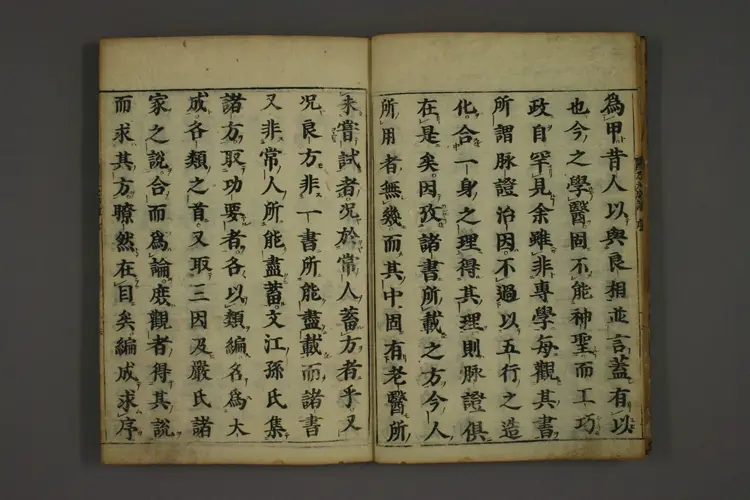 為甲昔人以與良相並言蓋有以
也今之學醫固不能神聖而工巧
政自罕見余雖非專學每觀其書
所謂脉證治因不過以五行之造
化合一身之理得其理則脉證俱
在是矣因攷諸書所載之方今人
所用者無幾而其中固有老醫所
未嘗試者况於常人蓄方者乎又
况良方非一書所能盡載而諸書
又非常人所能盡蓄文江孫氏集
諸方取功要者各以類編名為大
成各類之首又取三因及嚴氏諸
家之說合而為論庶觀者得其說
而求其方瞭然在目矣編成求序